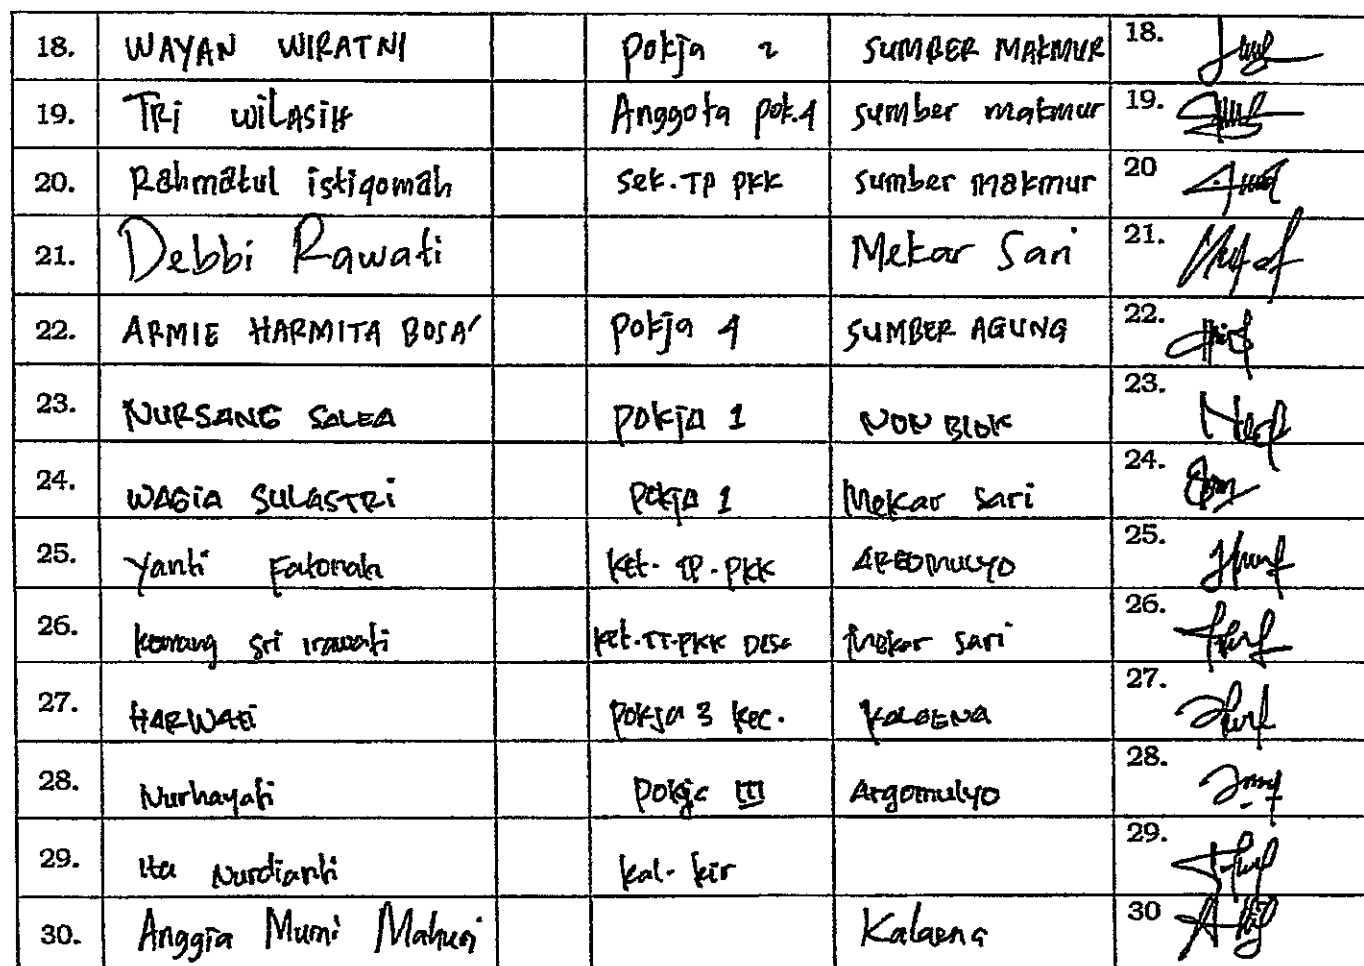 18. WAYAN WIRATNI Pokja 2 SUMBER MAKMUR 18.
19. TRi wiLASIH Anggota pok.4 sumber makmur 19.
20. Rahmatul istiqomah sek. TP PKK sumber makmur 20
21. Debbi Rawati Mekar Sari 21.
22. ARMIE HARMITA BOSA' pokja 4 SUMBER AGUNG 22.
23. NURSANG SALEA pokja 1 NON BLOK 23.
24. WAGIA SULASTRi pokja 1 Mekar Sari 24.
25. Yanti Fatonah ket. TP. PKK ARGOMULYO 25.
26. komang sri irawati ket. TT-PKK DESA mekar sari 26.
27. HARWATi pokja 3 kec. KALAENA 27.
28. Nurhayati pokja III Argomulyo 28.
29. Ita Nurdianti kal. kir 29.
30. Anggia Murni Kalaena 30